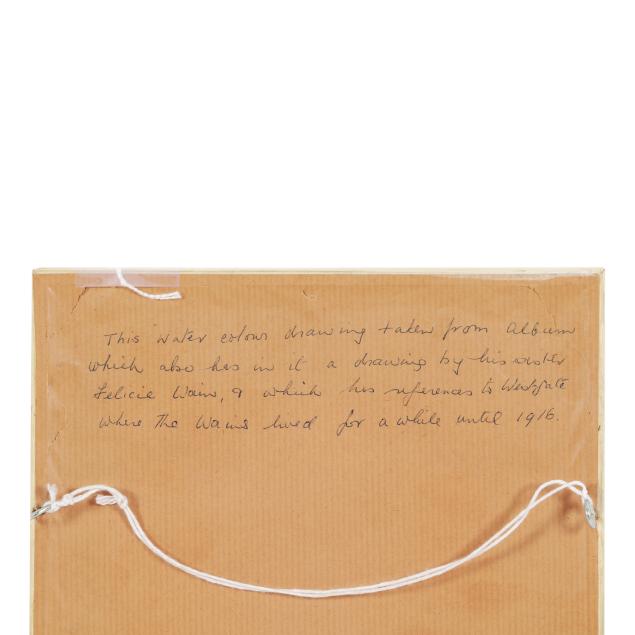 This Water colour drawing taken from Album
which also has in it a drawing by his sister
Felicie Wain, & which has references to Westgate
where The Wains lived for a while until 1916.